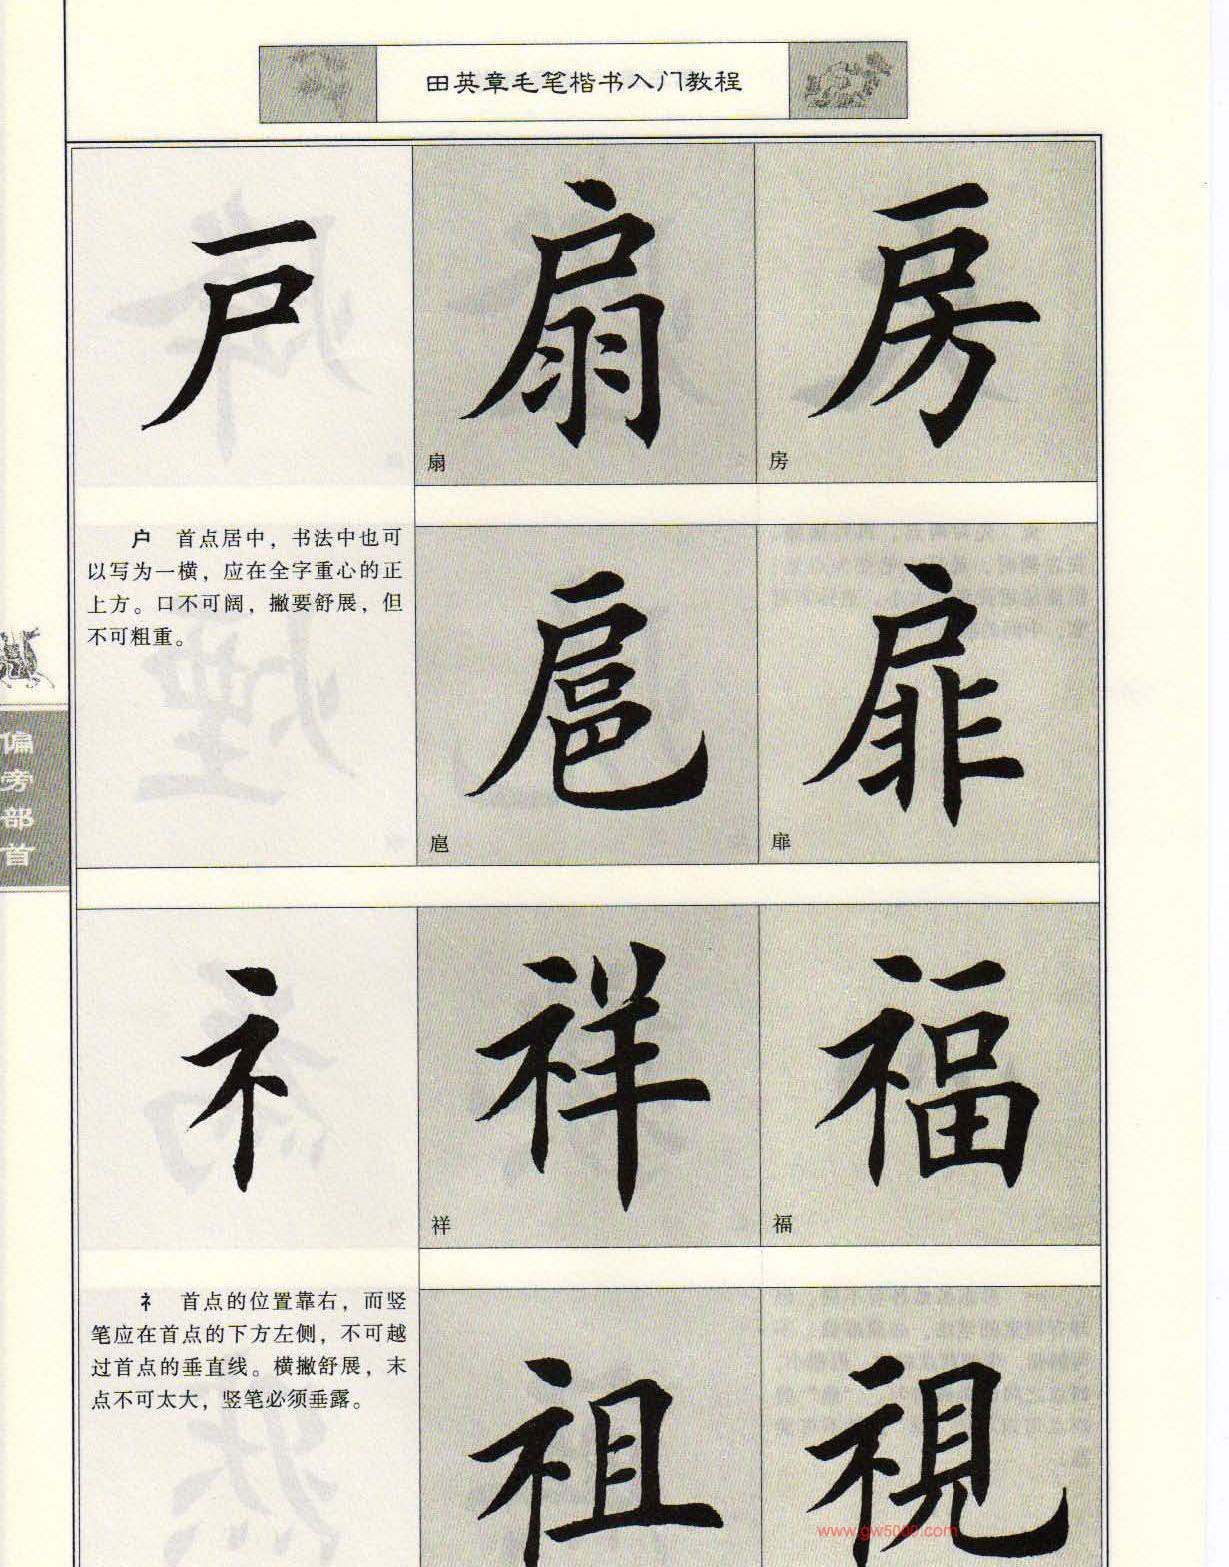 田英章毛笔楷书入门教程
户 扇 房
扇 房
户 首点居中，书法中也可
以写为一横，应在全字重心的正
上方。口不可阔，撇要舒展，但
不可粗重。
扈 扉
扈 扉
偏旁部首
礻 祥 福
祥 福
礻 首点的位置靠右，而竖
笔应在首点的下方左侧，不可越
过首点的垂直线。横撇舒展，末
点不可太大，竖笔必须垂露。
祖 視
www.gw5000.com